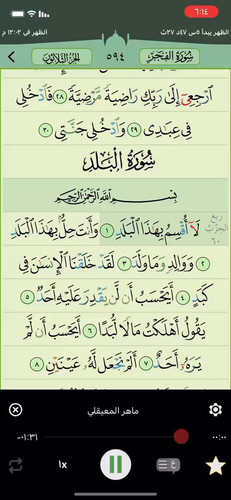 ٦:١٤
الظهر يبدأ ٥س ٤٧د ٢٧ث
الظهر في ١٢:٠٢ م
سُورَةُ الفَجْرِ
٥٩٤
الجُزْءُ الثَّلَاثُونَ
ٱرْجِعِىٓ إِلَىٰ رَبِّكِ رَاضِيَةً مَّرْضِيَّةً ٢٨ فَٱدْخُلِى
فِى عِبَٰدِى ٢٩ وَٱدْخُلِى جَنَّتِى ٣٠
سُورَةُ الْبَلَدِ
بِسْمِ ٱللَّهِ ٱلرَّحْمَٰنِ ٱلرَّحِيمِ
لَآ أُقْسِمُ بِهَٰذَا ٱلْبَلَدِ ١ وَأَنتَ حِلٌّۢ بِهَٰذَا ٱلْبَلَدِ
ربع الحزب ٦٠
٢ وَوَالِدٍ وَمَا وَلَدَ ٣ لَقَدْ خَلَقْنَا ٱلْإِنسَٰنَ فِى
كَبَدٍ ٤ أَيَحْسَبُ أَن لَّن يَقْدِرَ عَلَيْهِ أَحَدٌ ٥
يَقُولُ أَهْلَكْتُ مَالًا لُّبَدًا ٦ أَيَحْسَبُ أَن لَّمْ
يَرَهُۥٓ أَحَدٌ ٧ أَلَمْ نَجْعَل لَّهُۥ عَيْنَيْنِ ٨
ماهر المعيقلي
-٠١:٣١
٠٠:٠٠
1x